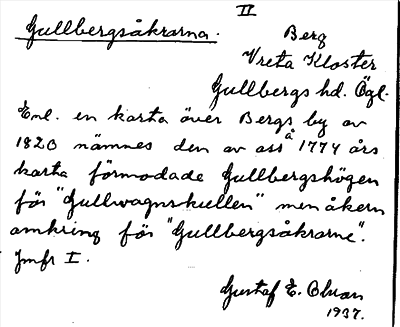 II
Gullbergsåkrarna.
Berg
Vreta Kloster
Gullbergs hd. Ögl.
Enl. en karta över Bergs by av
1820 nämnes den av oss å 1774 års
karta förmodade Gullbergshögen
för "Gullwagnskullen" men åkern
omkring för "Gullbergsåkrarne".
Jmfr I.
Gustaf E.
1937.